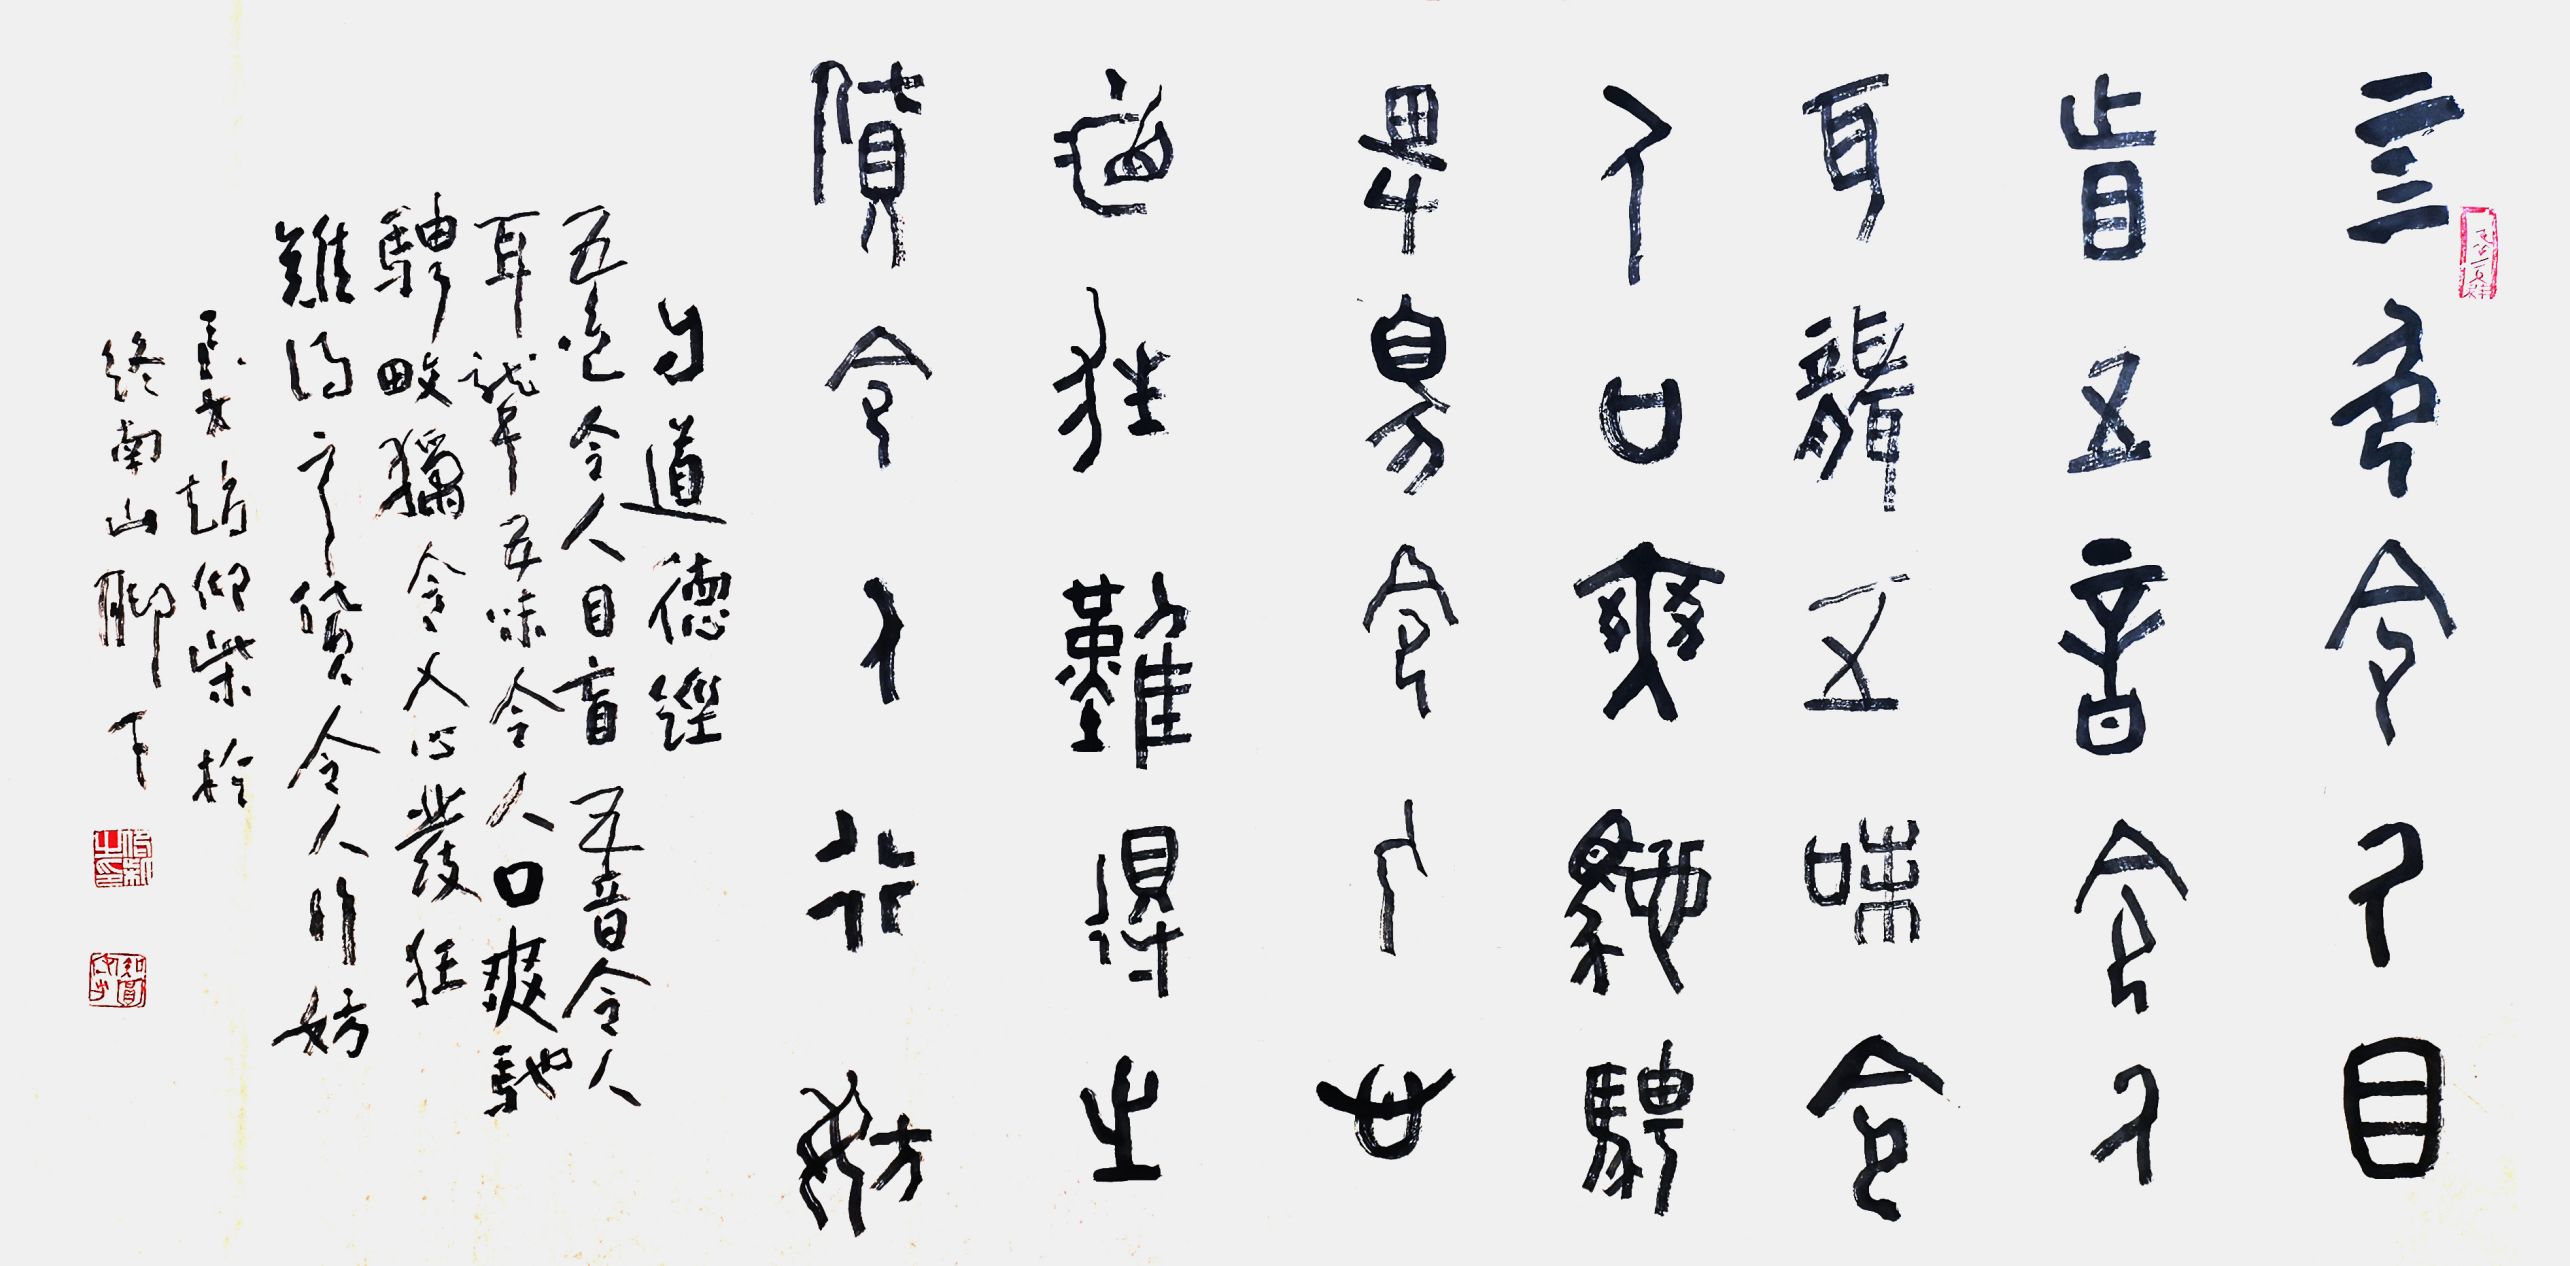 五色令人目
盲五音令人
耳聾五味令
人口爽馳騁
畋獵令人心
發狂難得之
貨令人行妨
道德經
五色令人目盲五音令人
耳聾五味令人口爽馳
騁畋獵令人心發狂
難得之貨令人行妨
長安趙仰柴於
終南山腳下